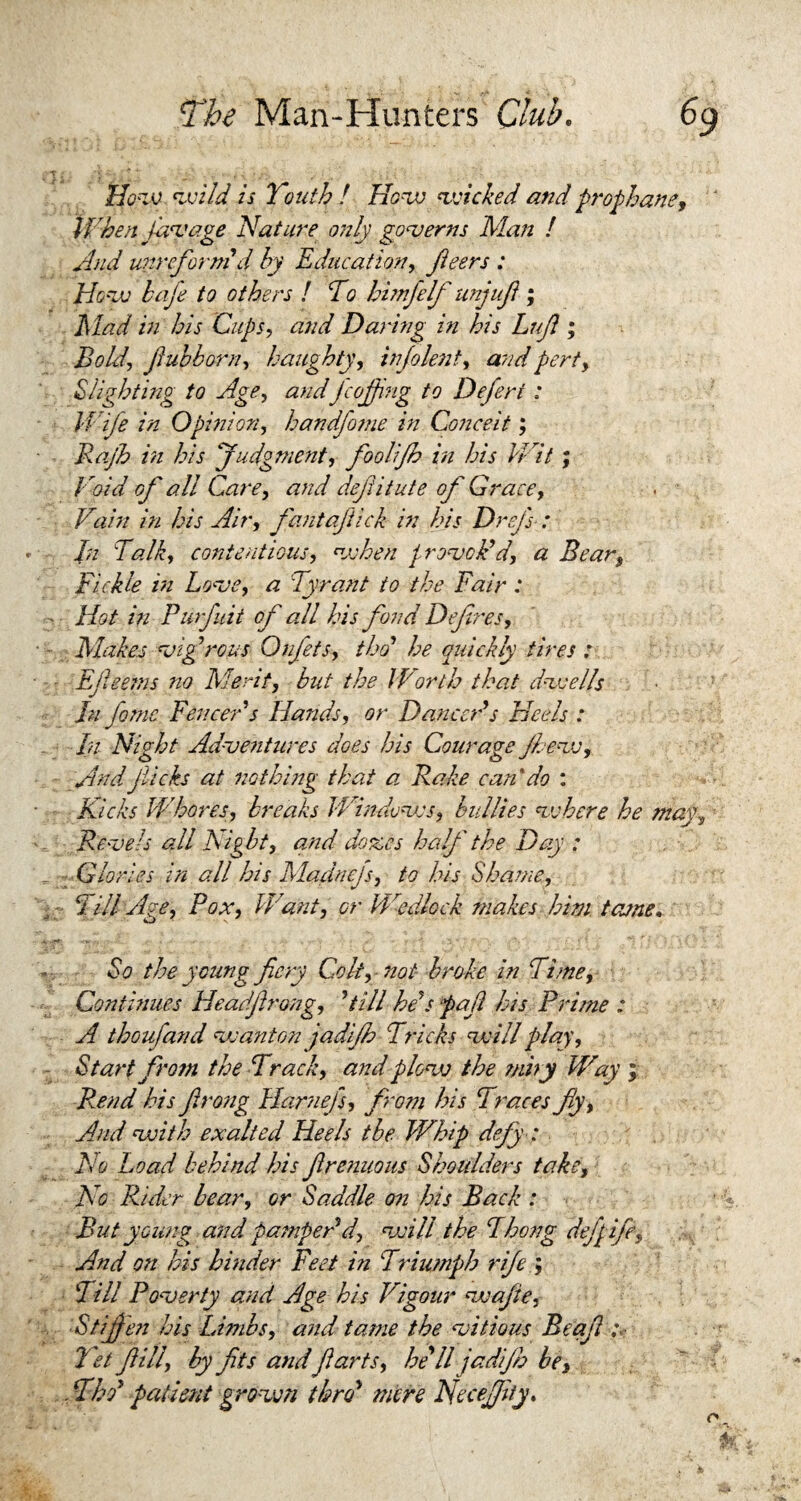 The Man-Hunters Club. 69
How wild is Youth ! How wicked and prophane,
When ſavage Nature only governs Man !
And unreform'd by Education, ſteers :
How baſe to others ! To himſelf unjuſt ;
Mad in his Cups, and Daring in his Luſt ;
Bold, ſtubborn, haughty, inſolent, and pert,
Slighting to Age, and ſcoffing to Deſert :
Wiſe in Opinion, handſome in Conceit ;
Raſh in his Judgment, fooliſh in his Wit ;
Void of all Care, and deſtitute of Grace,
Vain in his Air, fantaſtick in his Dreſs :
In Talk, contentious, when provok'd, a Bear,
Fickle in Love, a Tyrant to the Fair :
Hot in Purſuit of all his fond Deſires,
Makes vig'rous Onſets, tho' he quickly tires :
Eſteems no Merit, but the Worth that dwells
In ſome Fencer's Hands, or Dancer's Heels :
In Night Adventures does his Courage ſhew,
And ſticks at nothing that a Rake can do :
Kicks Whores, breaks Windows, bullies where he may,
Revels all Night, and dozes half the Day :
Glories in all his Madneſs, to his Shame,
Till Age, Pox, Want, or Wedlock makes him tame.
So the young fiery Colt, not broke in Time,
Continues Headſtrong, 'till he's paſt his Prime :
A thouſand wanton jadiſh Tricks will play,
Start from the Track, and plow the miry Way ;
Rend his ſtrong Harneſs, from his Traces fly,
And with exalted Heels the Whip defy :
No Load behind his ſtrenuous Shoulders take,
No Rider bear, or Saddle on his Back :
But young and pamper'd, will the Thong deſpiſe,
And on his hinder Feet in Triumph riſe ;
Till Poverty and Age his Vigour waſte,
Stiffen his Limbs, and tame the vitious Beaſt :
Yet ſtill, by fits and ſtarts, he'll jadiſh be,
Tho' patient grown thro' mere Neceſſity.